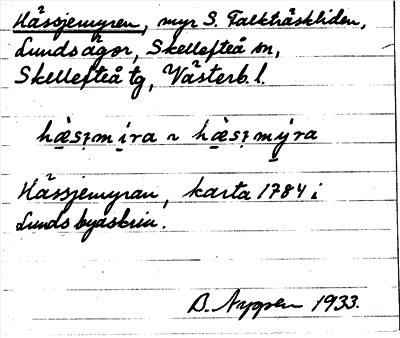 Hässjemyren, myr S. Falkträskliden,
Lunds ägor, Skellefteå sn,
Skellefteå tg, Västerb. l.
hȧ̀si̭mi̱ra ~ hȧ̀si̭mýra
Hässjemyran, karta 1784 i
Lunds byaskrin.
B. Nyppen 1933.